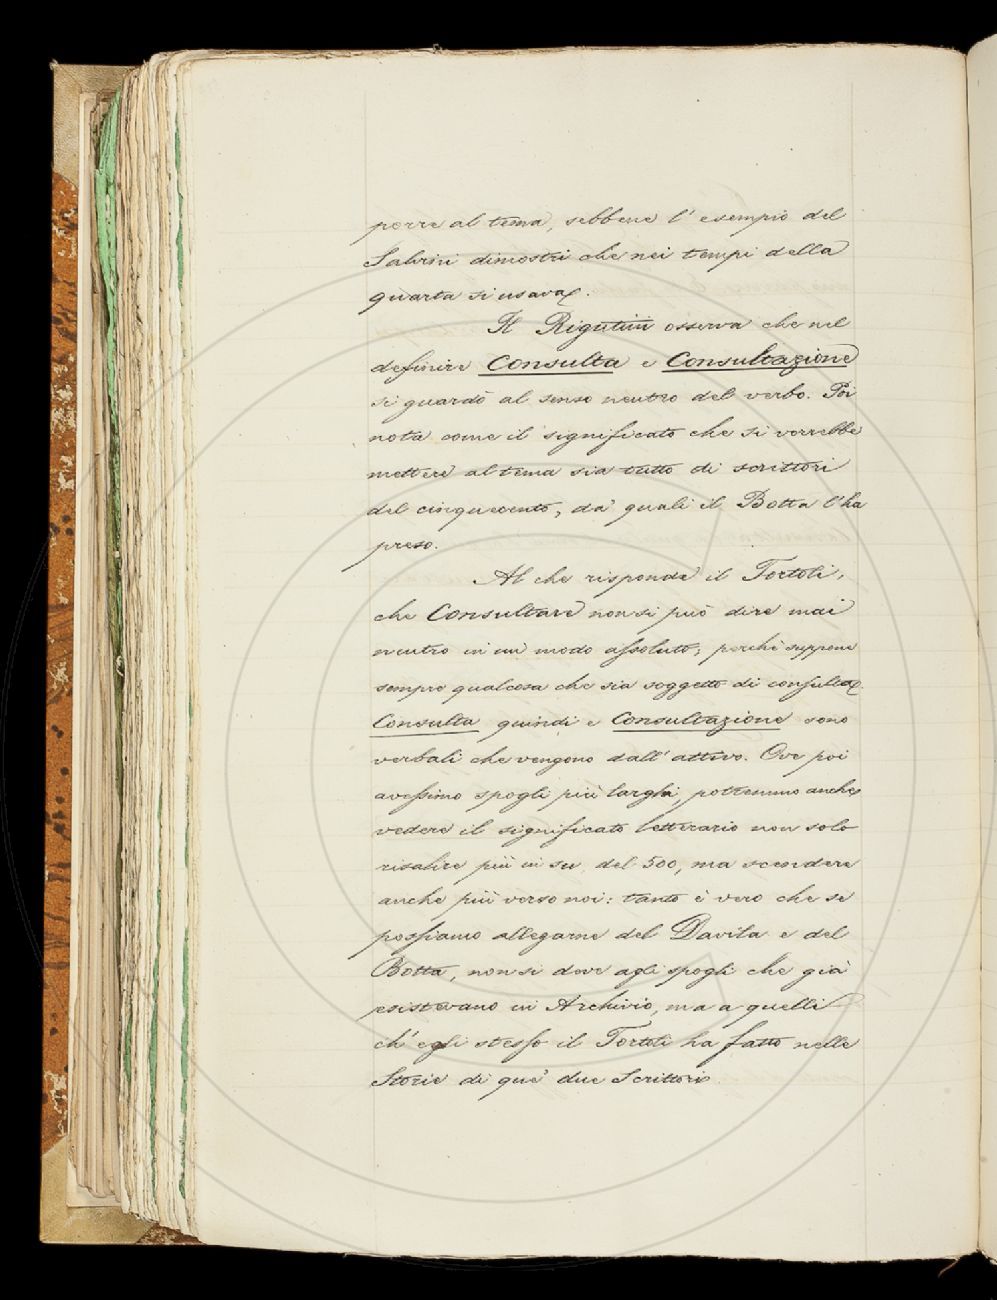 porre al tema, sebbene l' esempio del
Salvini dimostri che nei tempi della
quarta si usava.
Il Rigutini osserva che nel
definire Consulta e Consultazione
si guardò al senso neutro del verbo. Poi
nota come il significato che si vorrebbe
mettere al tema sia tutto di scrittori
del cinquecento, da' quali il Botta l'ha
preso.
Al che risponde il Tortoli,
che Consultare non si può dire mai
neutro in un modo assoluto, perchè suppone
sempre qualcosa che sia soggetto di consulta.
Consulta quindi e Consultazione sono
verbali che vengono dall' attivo. Ove poi
avessimo spogli più larghi, potremmo anche
vedere il significato letterario non solo
risalire più in su del 500, ma scendere
anche più verso noi: tanto è vero che se
possiamo allegarne del Davila e del
Botta, non si deve agli spogli che già
esistevano in Archivio, ma a quelli
ch' egli stesso il Tortoli ha fatto nelle
Storie di que' due Scrittori.